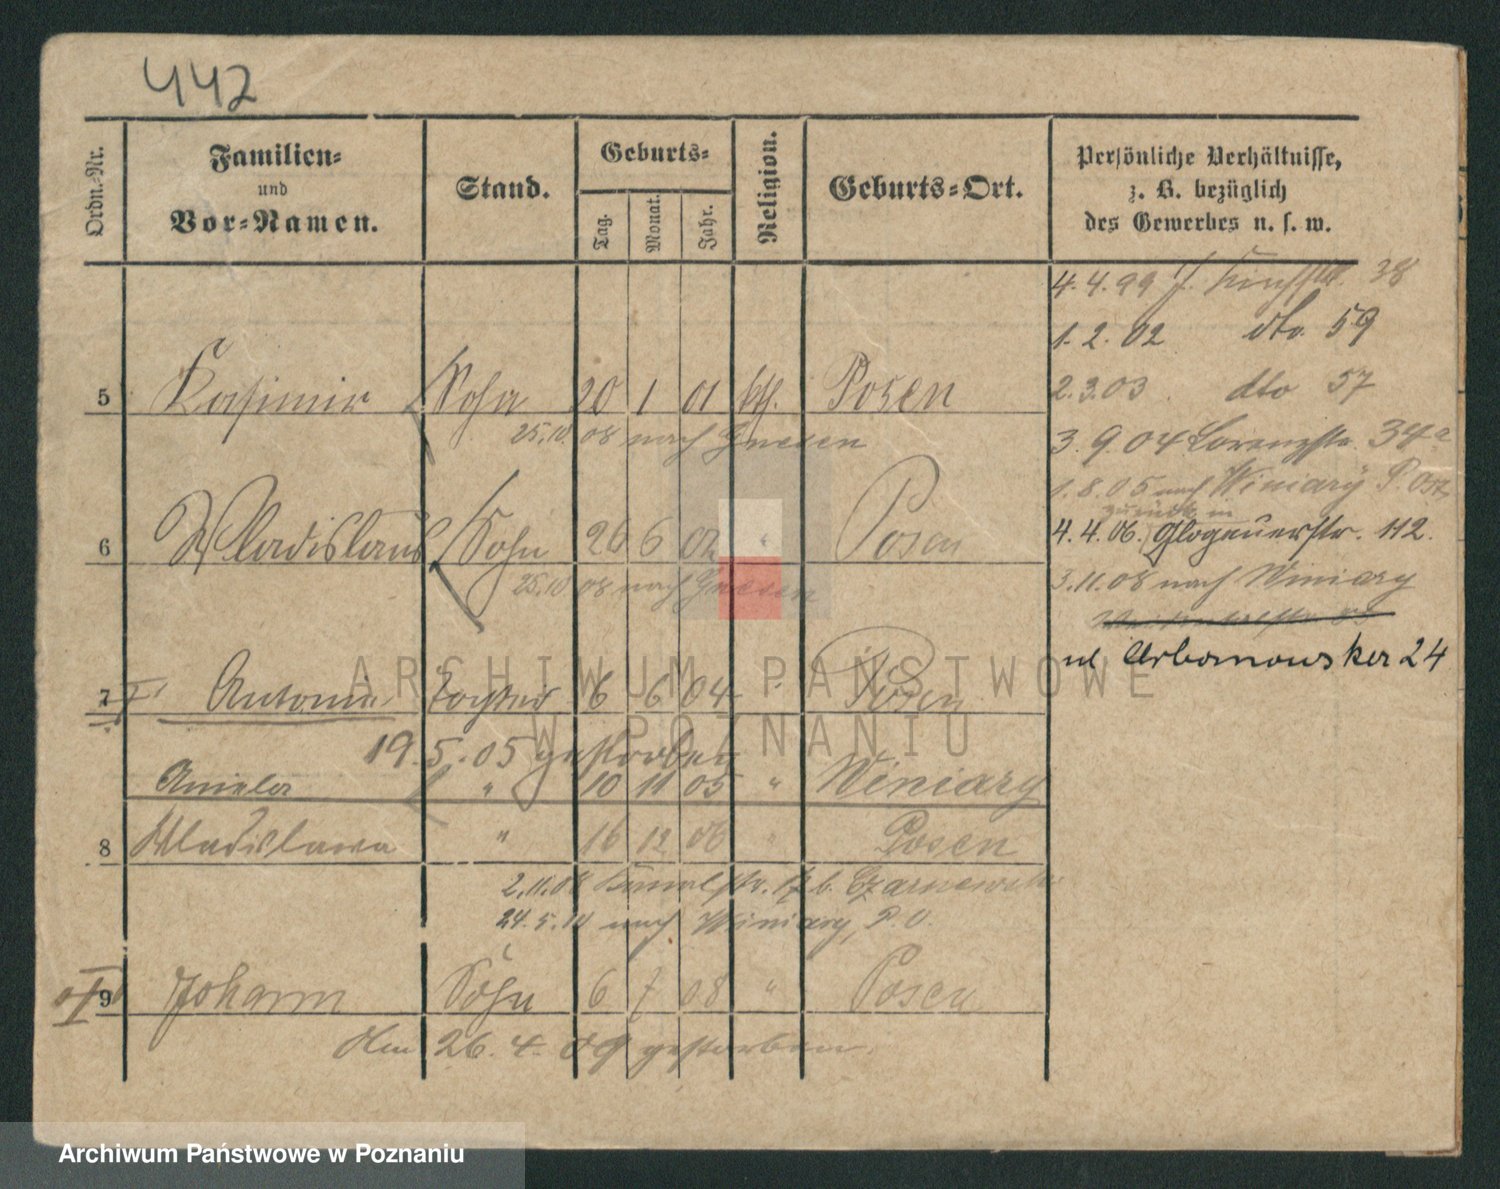 442
Ordn.-Nr.
Familien-
und
Vor-Namen.
Stand.
Geburts-
Tag.
Monat.
Jahr.
Religion.
Geburts-Ort.
Persönliche Verhältnisse,
z. B. bezüglich
des Gewerbes u. s. w.
4.4.99 38
1.2.02 dto. 59
2.3.03 dto 57
3.9.04 Lorenzstr. 34a
1.8.05 nach Winiary P. Ost
zurück in
4.4.06. Glogauerstr. 112.
3.11.08 nach Winiary
ul Urbanowsker 24
5 Kasimir Sohn 20 1 01 kth. Posen
25.10.08 nach Gnesen
6 Wladislaus Sohn 26 6 02 " Posen
25.10.08 nach Gnesen
7 Antonie Tochter 6 6 04 " Posen
19.5.05 gestorben
Aniela " 10 11 05 " Winiary
8 Wladislawa " 16 12 06 " Posen
2.11.08 b. Czarnewski
24.5.10 nach Winiary, P. O.
9 Johann Sohn 6 7 08 " Posen
Am 26.4.09 gestorben.
ARCHIWUM PAŃSTWOWE
W POZNANIU
Archiwum Państwowe w Poznaniu